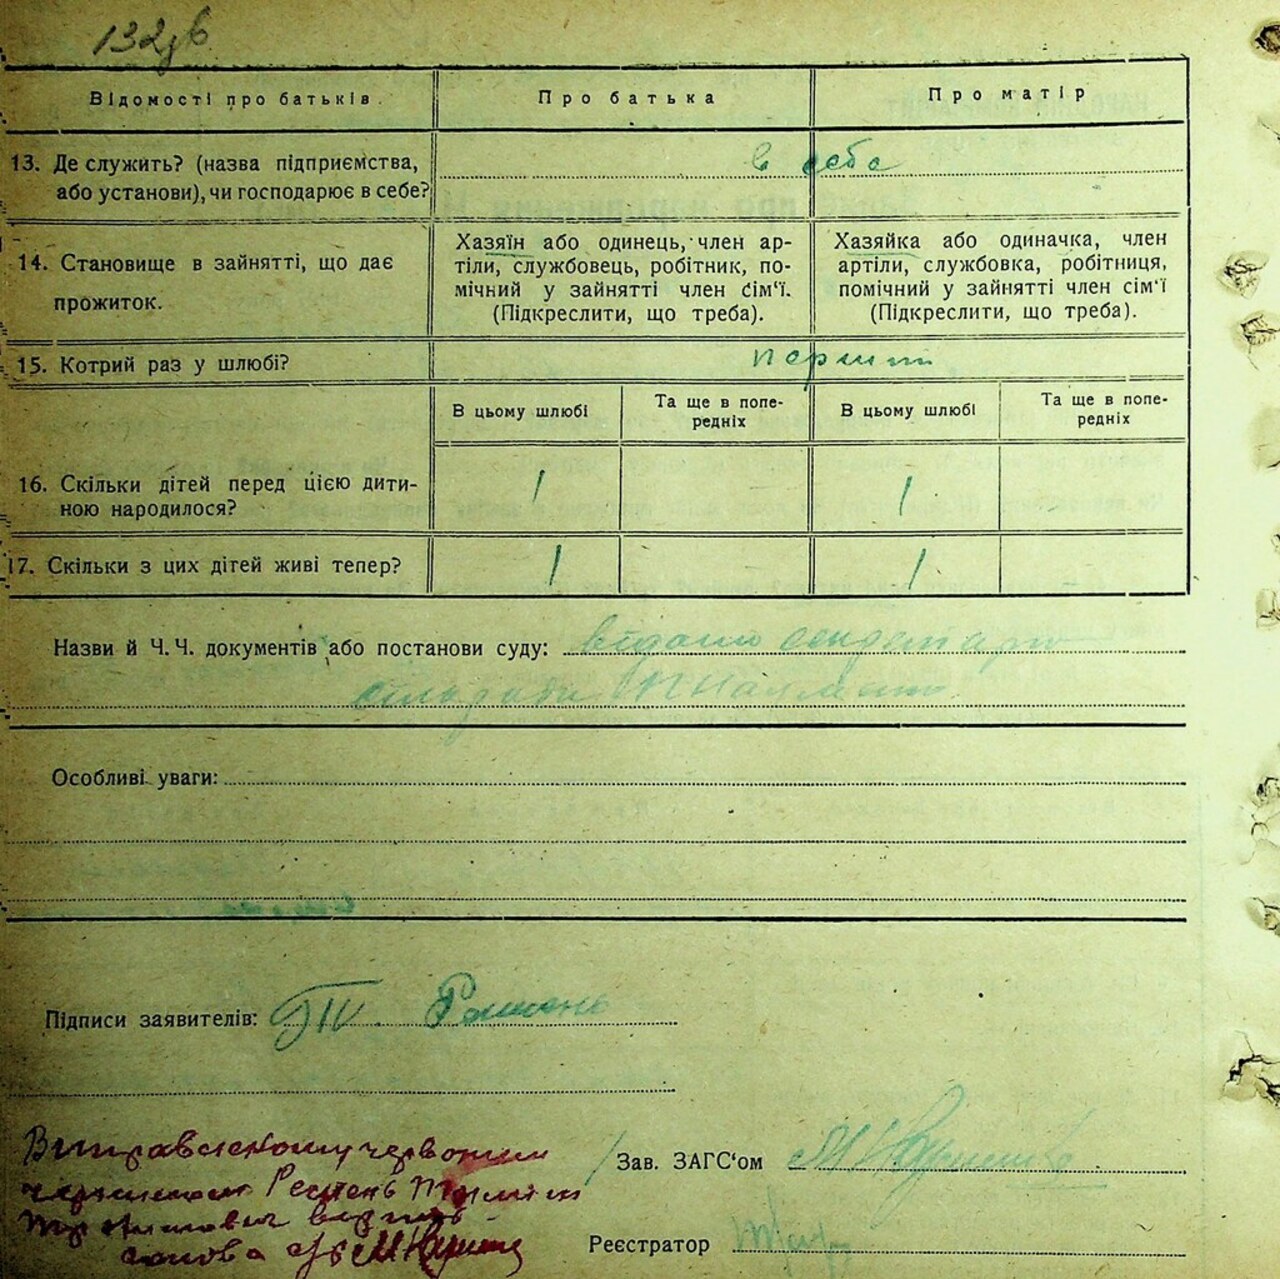 132зв
Відомості про батьків.
Про батька
Про матір
13. Де служить? (назва підприємства,
або установи), чи господарює в себе?
в себе
14. Становище в зайнятті, що дає
прожиток.
Хазяїн або одинець, член ар-
тіли, службовець, робітник, по-
мічний у зайнятті член сім‘ї.
(Підкреслити, що треба).
Хазяйка або одиначка, член
артіли, службовка, робітниця,
помічний у зайнятті член сім‘ї
(Підкреслити, що треба).
15. Котрий раз у шлюбі?
перший
В цьому шлюбі
Та ще в попе-
редніх
В цьому шлюбі
Та ще в попе-
редніх
16. Скільки дітей перед цією дити-
ною народилося?
1
1
17. Скільки з цих дітей живі тепер?
1
1
Назви й Ч. Ч. документів або постанови суду:
сільради
Особливі уваги:
Підписи заявителів:
Зав. ЗАГС‘ом
Реєстратор
червоним